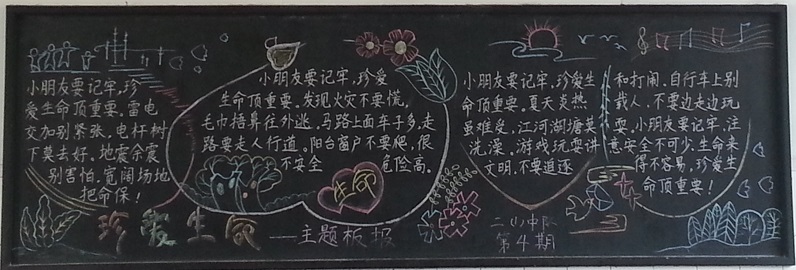 小朋友要记牢，珍
爱生命顶重要。雷电
交加别紧张，电杆树
下莫去好。地震余震
别害怕，宽阔场地
把命保！
小朋友要记牢，珍爱
生命顶重要。发现火灾不要慌，
毛巾捂鼻往外逃。马路上面车子多，走
路要走人行道。阳台窗户不要爬，很
不安全 危险高。
生命
小朋友要记牢，珍爱生
命顶重要。夏天炎热
虽难受，江河湖塘莫
洗澡。游戏玩耍讲
文明，不要追逐
和打闹。自行车上别
载人，不要边走边玩
耍。小朋友要记牢，注
意安全不可少。生命来
得不容易，珍爱生
命顶重要！
珍爱生命——主题板报
二（4）中队
第4期